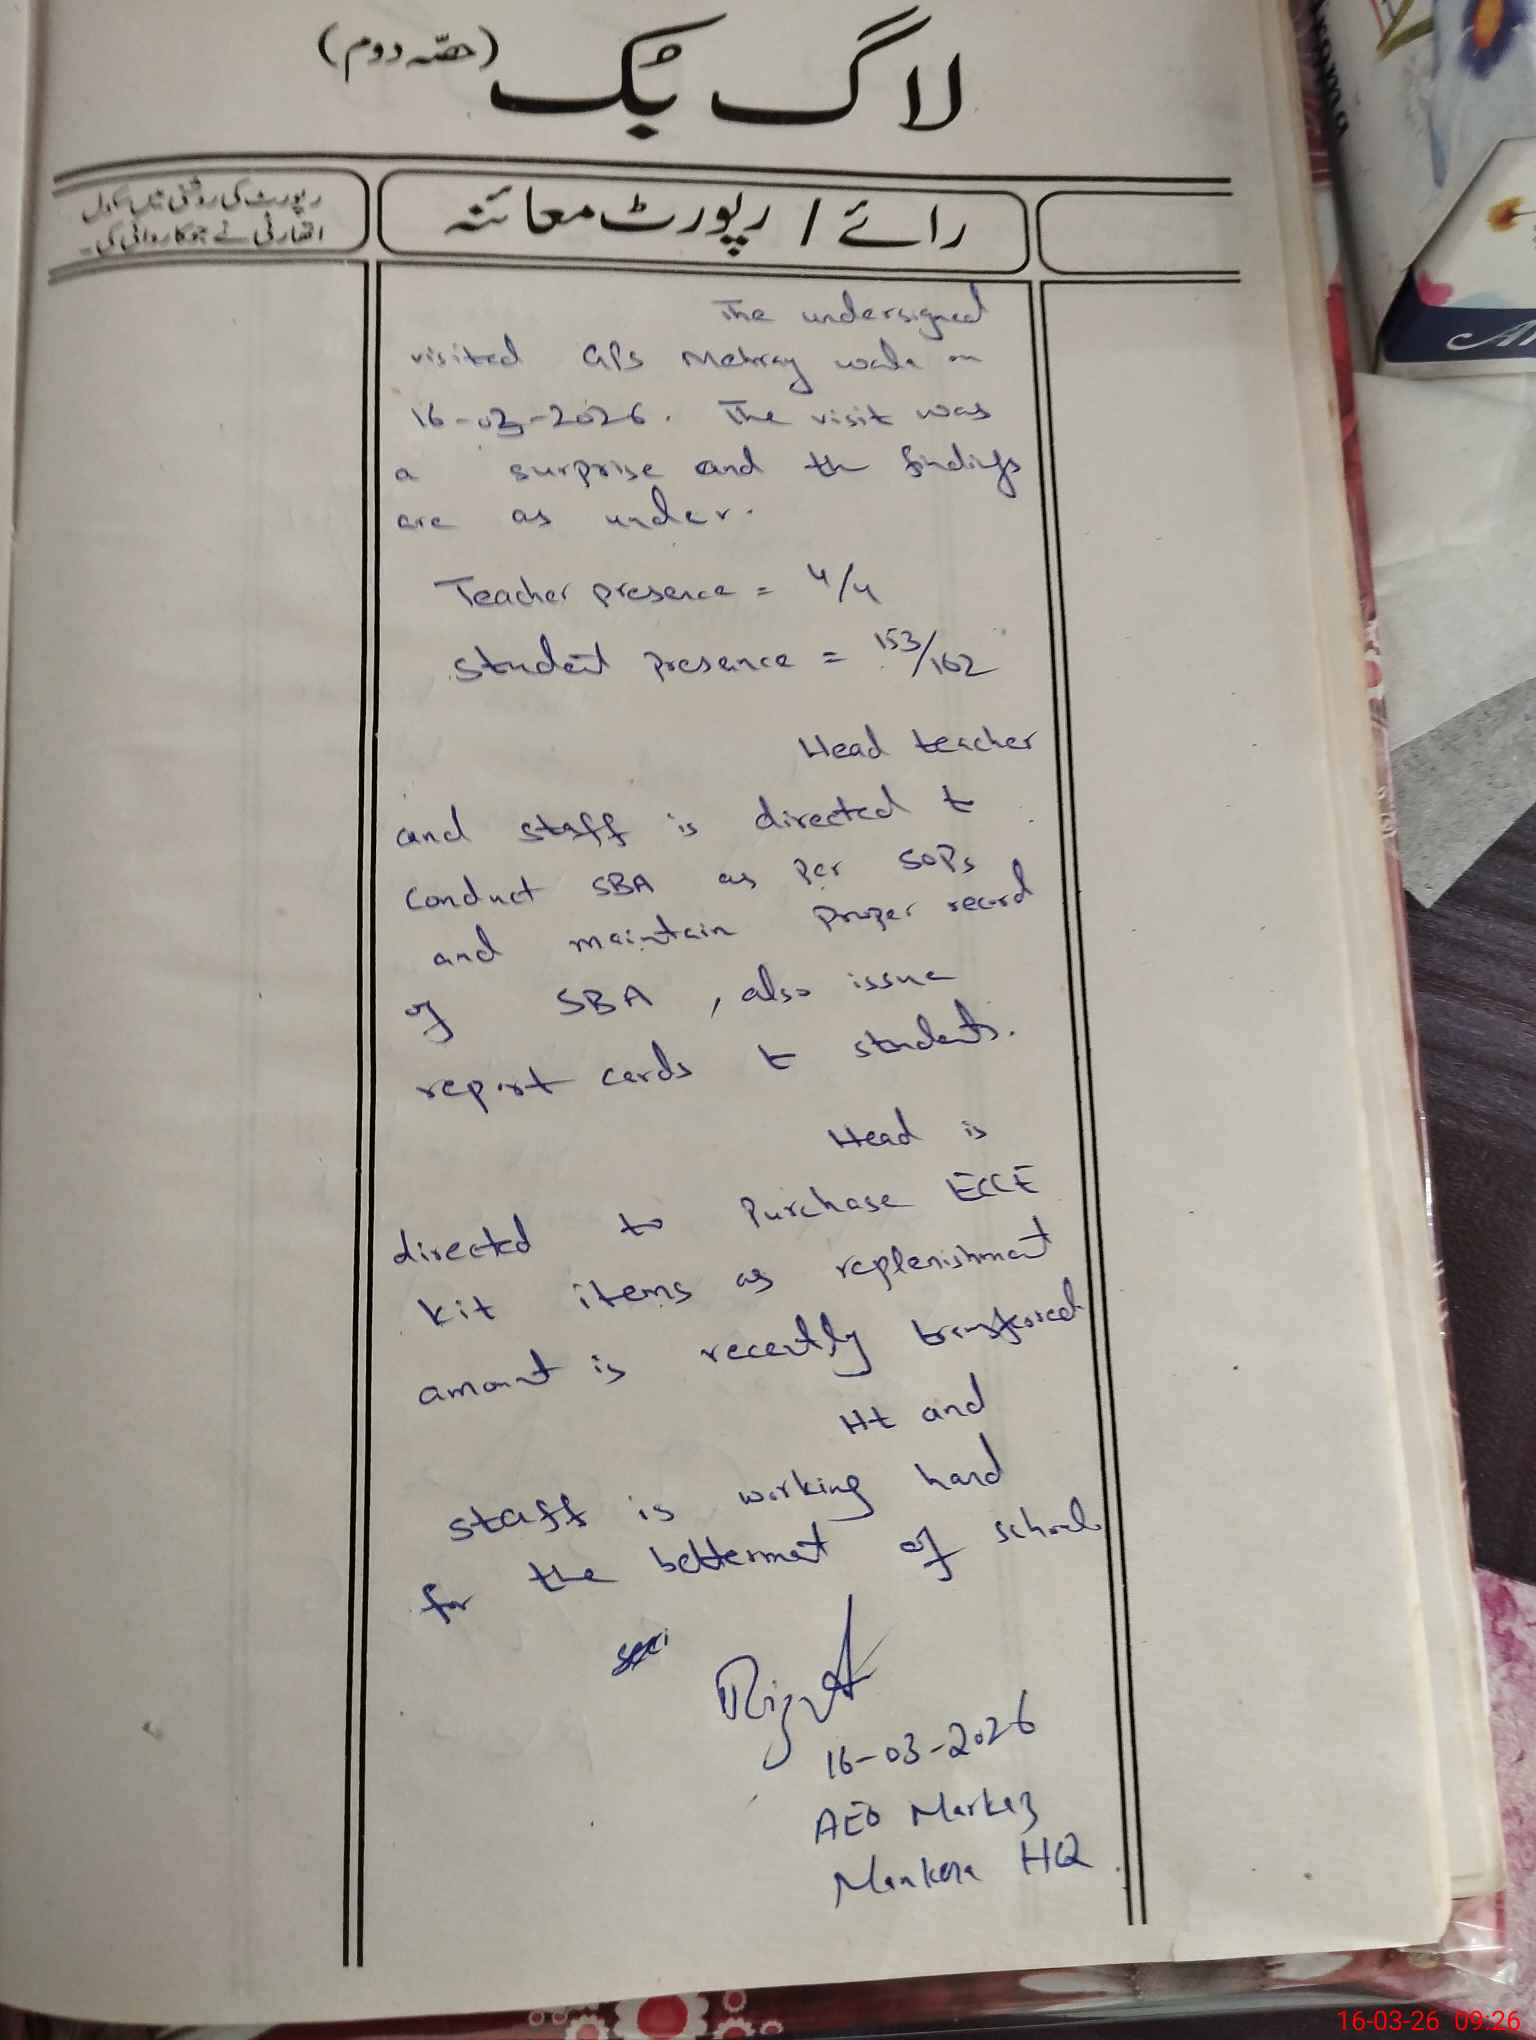 لاگ بُک (حصّہ دوم)
رائے / رپورٹ معائنہ
رپورٹ کی روشنی میں سکول
اتھارٹی نے جو کاروائی کی۔
The undersigned
visited GPS Mehray wala on
16-03-2026. The visit was
a surprise and the findings
are as under.
Teacher presence = 4/4
student presence = 153/162
Head teacher
and staff is directed to
conduct SBA as per SOPs
and maintain proper record
of SBA, also issue
report cards to students.
Head is
directed to purchase ECCE
kit items as replenishment
amount is recently transferred
Ht and
staff is working hard
for the betterment of school.
16-03-2026
AEO Markaz
Mankera HQ
16-03-26 09:26